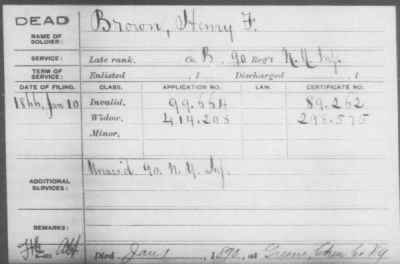 DEAD
NAME OF SOLDIER:
Brown, Henry F.
SERVICE:
Late rank, Co. B, 90 Reg't N.Y. Inf.
TERM OF SERVICE:
Enlisted , 1 Discharged , 1
DATE OF FILING. CLASS. APPLICATION NO. LAW. CERTIFICATE NO.
1866, Jan 10 Invalid, 99.664 89.262
Widow, 414.208 298.575
Minor,
ADDITIONAL SERVICES:
Unas'd 90. N.Y. Inf.
REMARKS:
Died Jan 1890, at Greene, Chen Co NY